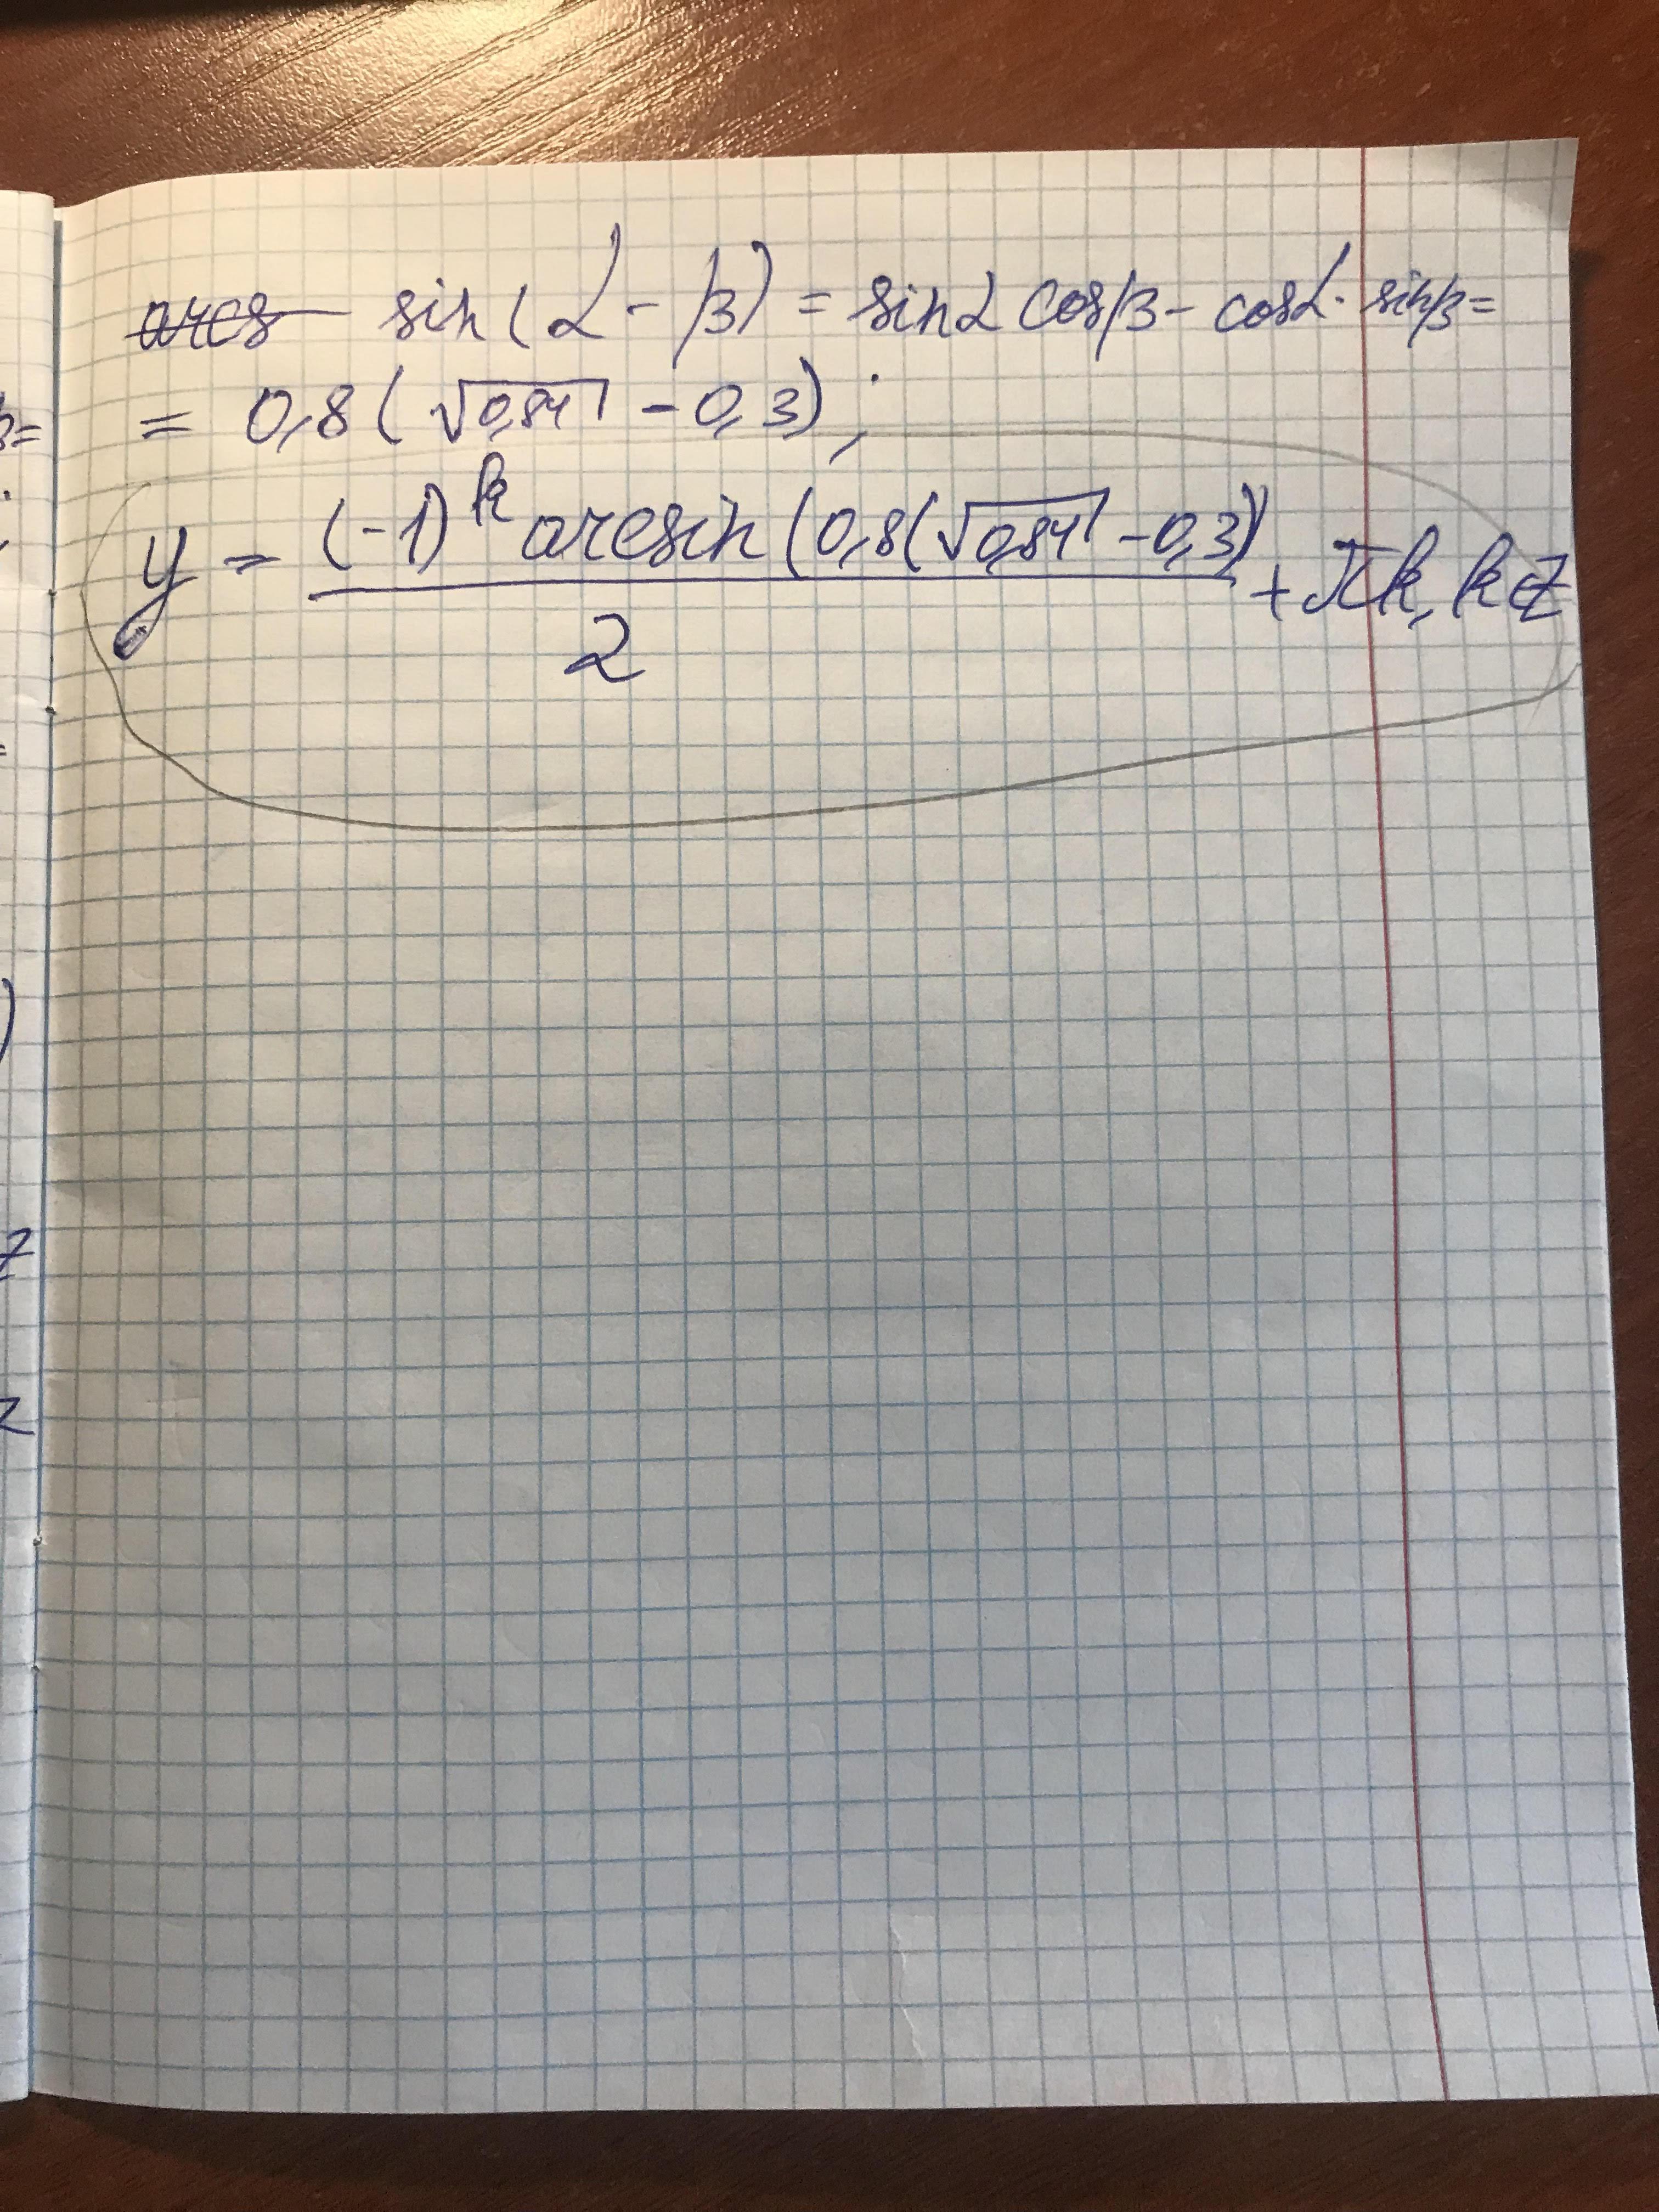 arcs sin(α-β) = sinα cosβ - cosα · sinβ =
= 0,8(√0,84 - 0,3);
y = (-1)^k arcsin(0,8(√0,84 - 0,3) / 2 + πk, k∈Z